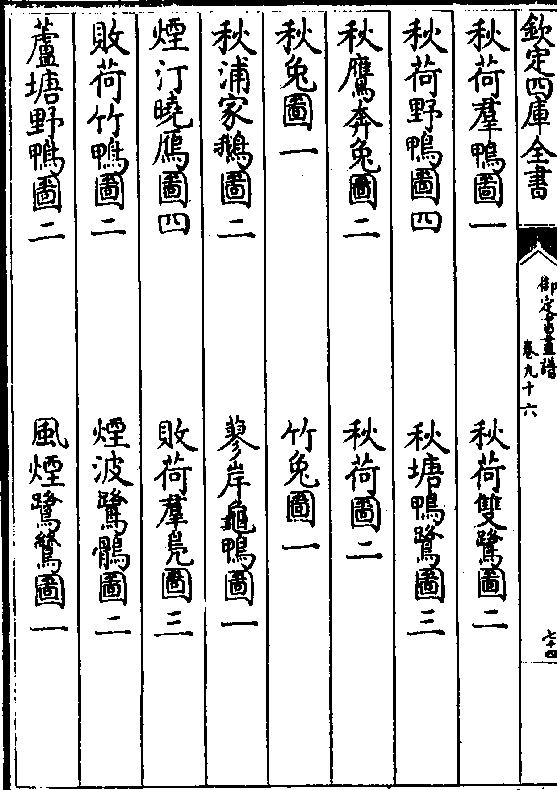 欽定四庫全書
御定書畫譜
卷九十六
七十四
秋荷羣鴨圖一　秋荷雙鷺圖二
秋荷野鴨圖四　秋塘鴨鷺圖三
秋鷹奔兔圖二　秋荷圖二
秋兔圖一　竹兔圖一
秋浦家鵝圖二　蓼岸龜鴨圖一
煙汀曉鴈圖四　敗荷羣鳧圖三
敗荷竹鴨圖二　煙波鷺鶻圖二
蘆塘野鴨圖二　風煙鷺鷥圖一